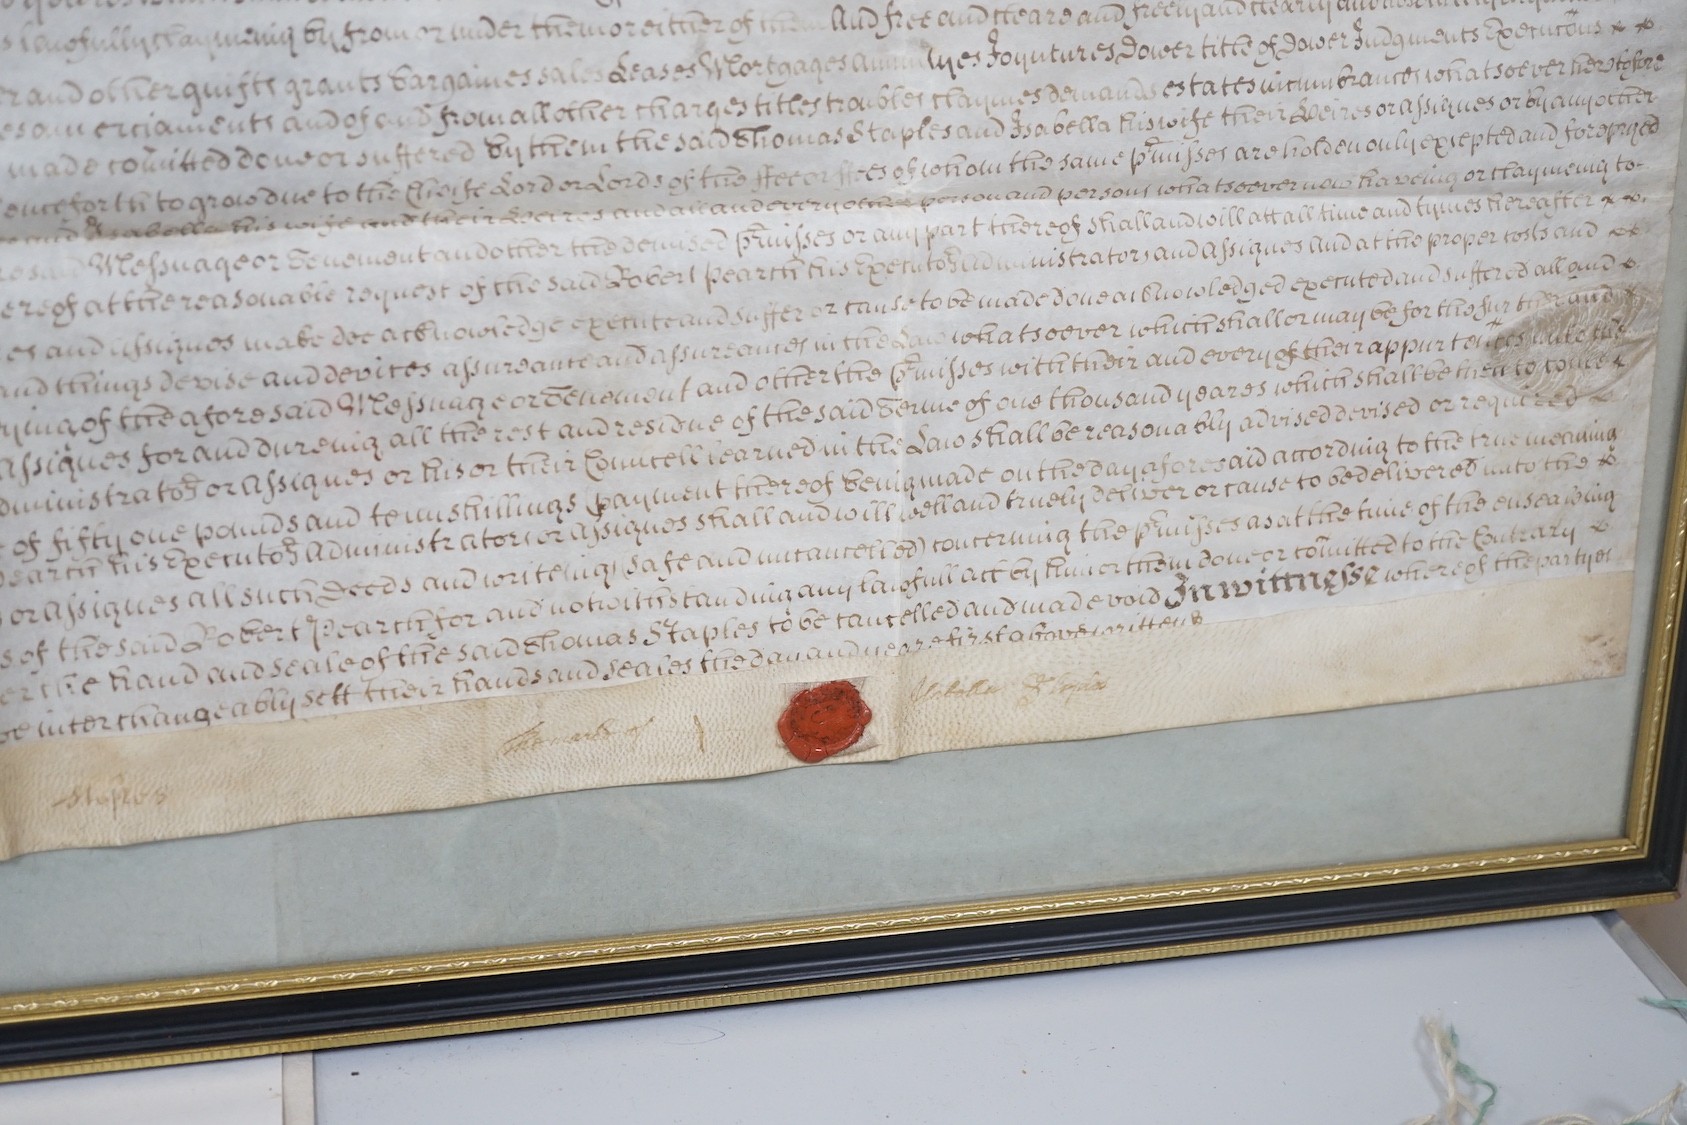 lawfully claymeing by from or under them or either of them And free and cleare and freely and clearly
and other guifts grants bargaines sales Leases Mortgages Joyntures Dower title of Dower Judgments Executions
amerciaments and of and from all other charges titles troubles claymes demands estates incumbrances whatsoever heretofore
made com̃itted done or suffered by them the said Thomas Staples and Isabella his wife their Heires or assignes or by any other
henceforth to grow due to the Cheife Lord or Lords of the ffee or ffees of whom the same p̃misses are holden only excepted and foreprized
and Isabella his wife and their Heires and all and every other person and persons whatsoever now haveing or claymeing to
said Messuage or Tenement and other the demised p̃misses or any part thereof shall and will att all time and tymes hereafter
hereof at the reasonable request of the said Robert Pearch his Executo͏̃rs Administrators and Assignes and at the proper costs and
and Assignes make doe acknowledge execute and suffer or cause to be made done acknowledged executed and suffered all and
and things devise and devices assureance and assureances in the Law whatsoever which shall or may be for the further and
of the aforesaid Messuage or Tenement and other the p̃misses with their and every of their appurtenc̃es unto the
Assignes for and dureing all the rest and residue of the said Terme of one thousand yeares which shall be then to come
Administrato͏̃rs or Assignes or his or their Councell learned in the Law shall be reasonably advised devised or required
of fifty one pounds and tenn shillings payment thereof being made on the day aforesaid according to the true meaning
Pearch his Executo͏̃rs Administrators or Assignes shall and will well and truely deliver or cause to be delivered unto the
or assignes all such Deeds and writeings safe and uncancelled) concerning the p̃misses as at the time of the ensealing
of the said Robert Pearch for and notwithstanding any lawfull act by him or them done or com̃itted to the Contrary
the hand and seale of the said Thomas Staples to be cancelled and made void In wittnesse whereof the partyes
interchangeably sett their hands and seales the day and yeare first above written
Staples
The marke of
Isabella Staples